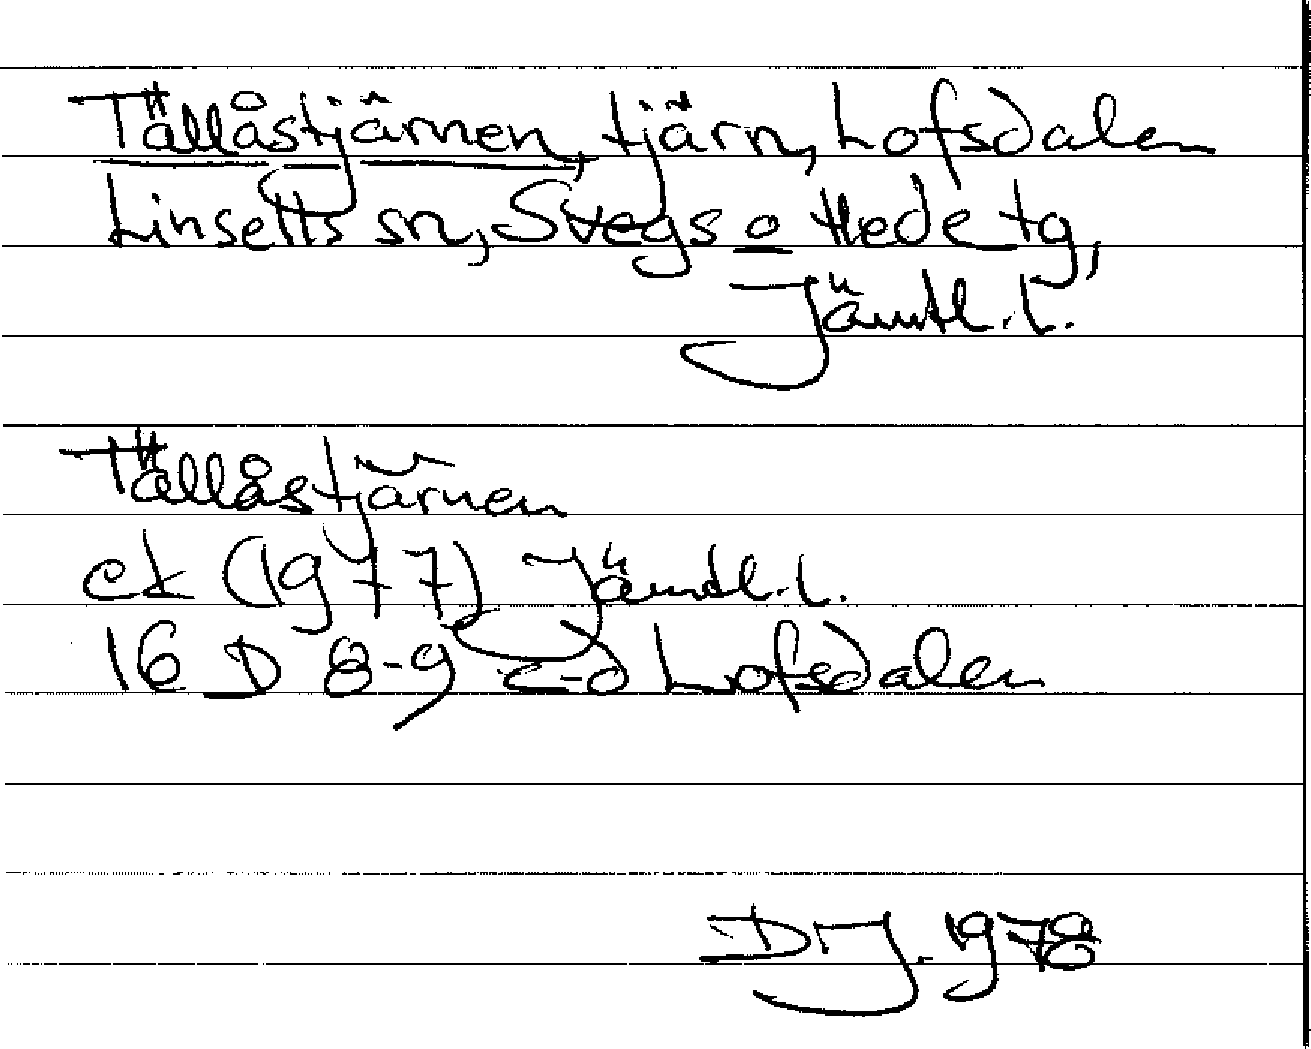 Tällåstjärnen, tjärn, Lofsdalen
Linsells sn, Svegs o Hede tg,
Jämtl. l.
Tällåstjärnen
ek (1977) Jämtl. l.
16 D 8-9 c-d Lofsdalen
DJ. 1978